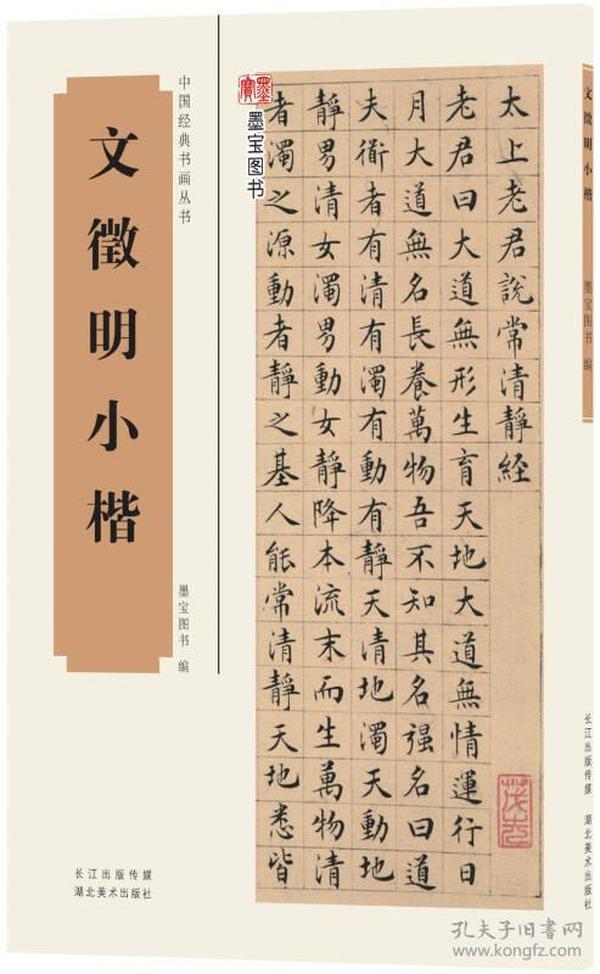 中国经典书画丛书
文徵明小楷
墨宝图书 编
长江出版传媒
湖北美术出版社
墨寶
墨宝图书
太上老君說常清靜經
老君曰大道無形生育天地大道無情運行日
月大道無名長養萬物吾不知其名强名曰道
夫衜者有清有濁有動有靜天清地濁天動地
靜男清女濁男動女靜降本流末而生萬物清
者濁之源動者靜之基人能常清靜天地悉皆
茂苑
文徵明小楷
墨宝图书 编
长江出版传媒 湖北美术出版社
孔夫子旧书网
www.kongfz.com